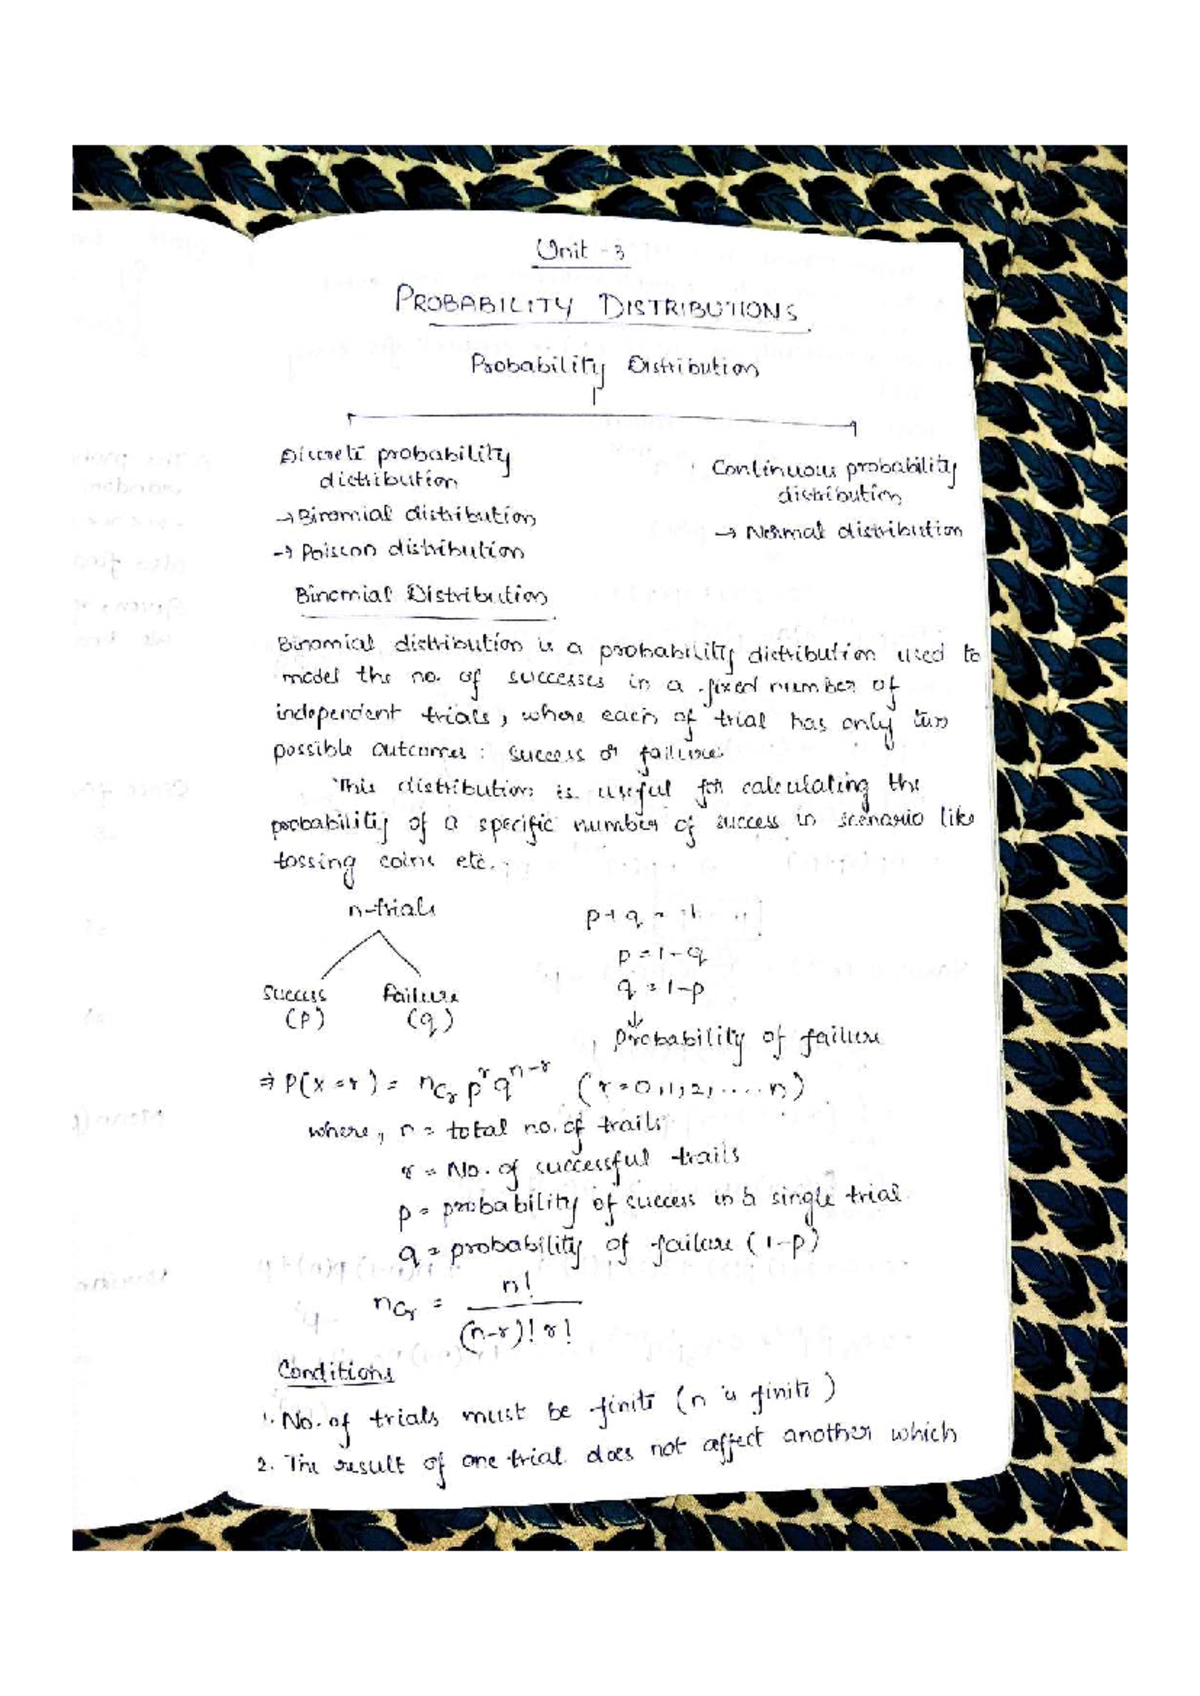 Unit - 3
PROBABILITY DISTRIBUTIONS
Probability Distribution
Discrete probability
distribution
→ Binomial distribution
→ Poisson distribution
Continuous probability
distribution
→ Normal distribution
Binomial Distribution
Binomial distribution is a probability distribution used to
model the no. of successes in a fixed number of
independent trials, where each of trial has only two
possible outcomes : success or failure.
This distribution is useful for calculating the
probability of a specific number of success in scenario like
tossing coins etc.
n-trials
Success Failure
(p) (q)
p+q = 1
p = 1-q
q = 1-p
↓
Probability of failure
⇒ P(x=r) = nCr p^r q^n-r (r=0,1,2,....n)
where, n = total no. of trails
r = No. of successful trails
p = probability of success in a single trial
q = probability of failure (1-p)
nCr = n! / (n-r)! r!
Conditions
1. No. of trials must be finite (n is finite)
2. The result of one trial does not affect another which